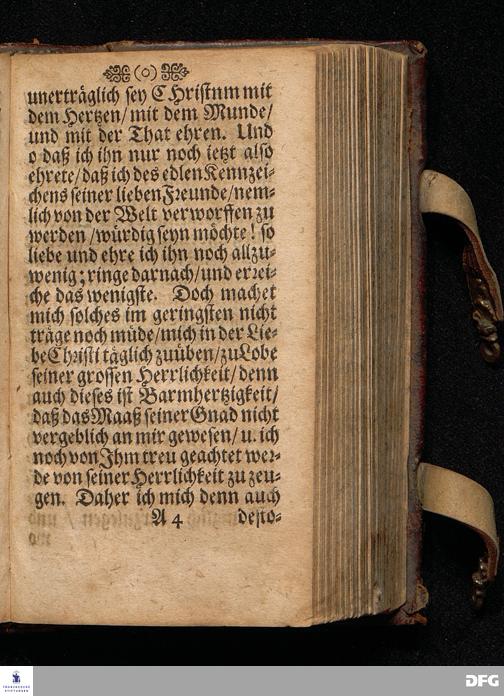 (o)
unerträglich sey CHristnm mit
dem Hertzen/mit dem Munde/
und mit der That ehren. Und
o daß ich ihn nur noch ietzt also
ehrete/daß ich des edlen Kennzei-
chens seiner lieben Freunde/nem-
lich von der Welt verworffen zu
werden/würdig seyn möchte! so
liebe und ehre ich ihn noch allzu-
wenig; ringe darnach/und errei-
che das wenigste. Doch machet
mich solches im geringsten nicht
träge noch müde/mich in der Lie-
be Christi täglich zuüben/zu Lobe
seiner grossen Herrlichkeit/denn
auch dieses ist Barmhertzigkeit/
daß das Maaß seiner Gnad nicht
vergeblich an mir gewesen/u. ich
noch von Jhm treu geachtet wer-
de von seiner Herrlichkeit zu zeu-
gen. Daher ich mich denn auch
A 4 desto-
FRANCKESCHE
STIFTUNGEN
DFG